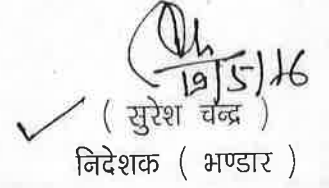 19/5/16
( सुरेश चन्द्र )
निदेशक ( भण्डार )